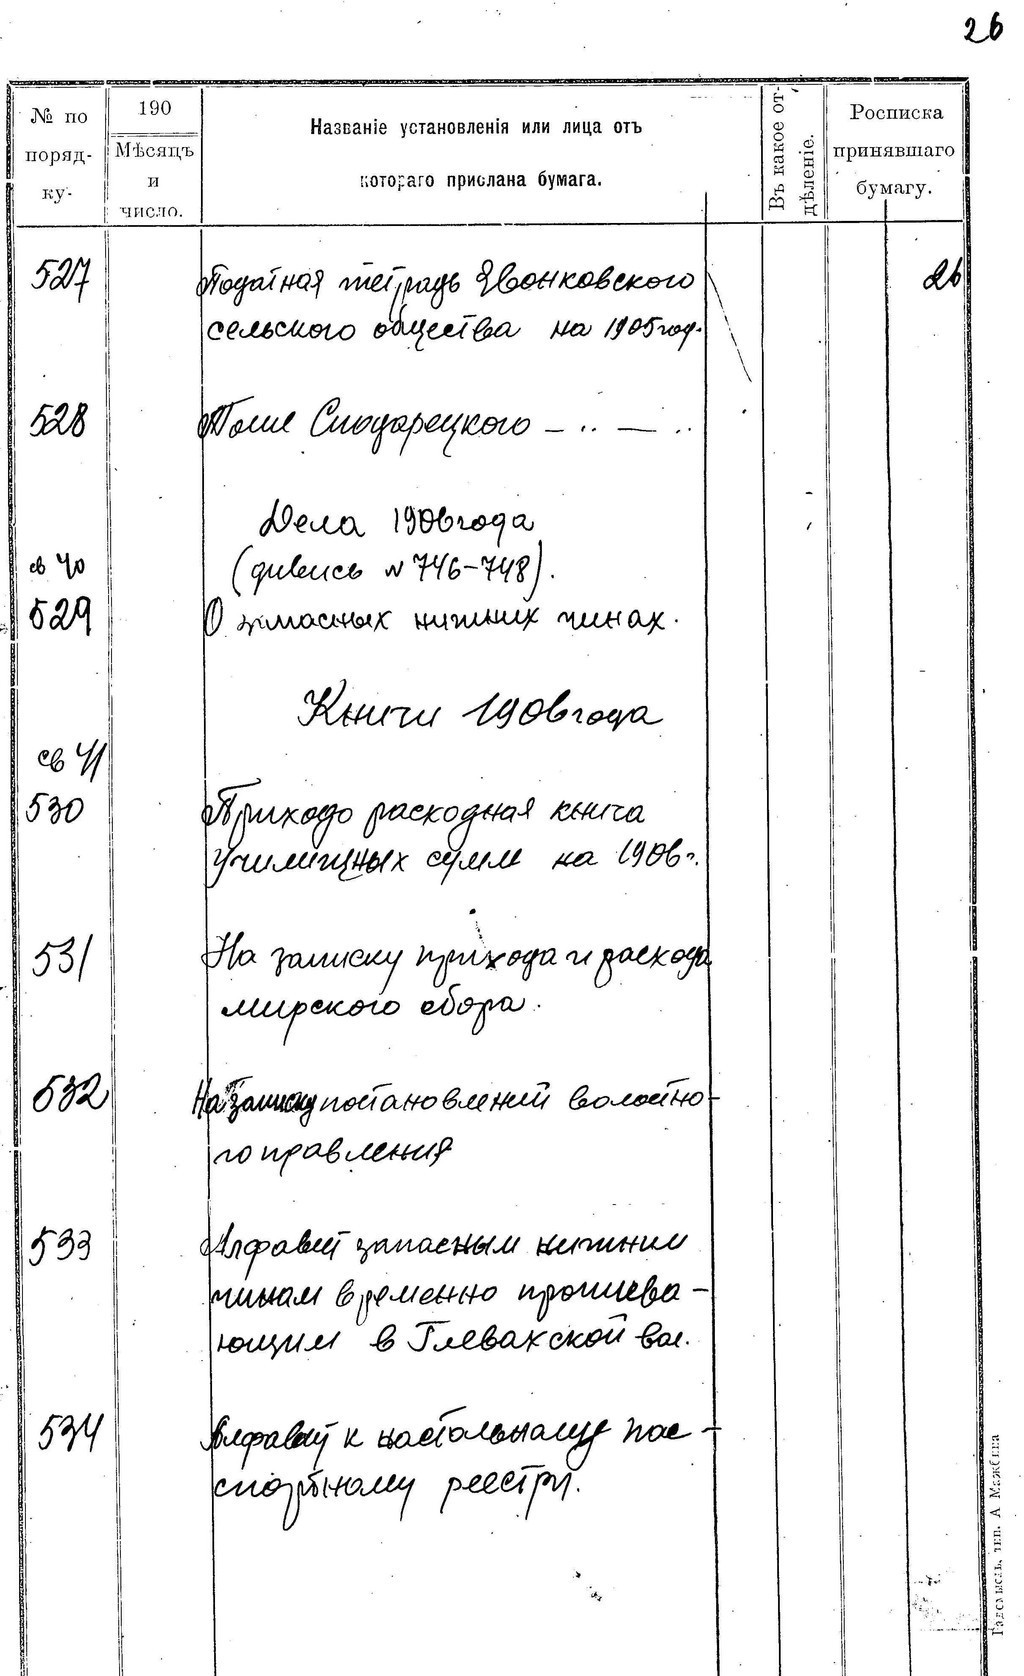 26
№ по поряд- ку.
190
Мѣсяцъ и число.
Названіе установленія или лица отъ
котораго прислана бумага.
Въ какое от- дѣленіе.
Росписка принявшаго бумагу.
527 Податная тетрадь Звонковского 26
сельского общества на 1905 год.
528 Тоже Сподарецкого — .. — ..
Дела 1906 года
св 40 (дивись N 746-748).
529 О запасных нижних чинах.
Книги 1906 года
св 41
530 Приходо расходная книга
училищных сумм на 1906 г.
531 На записку прихода и расхода
мирского сбора.
532 На записку постановлений волостно-
го правления
533 Алфавит запасным нижним
чинам временно прожива-
ющим в Глевахской вол.
534 Алфавит к настольному пас-
спортному реестру.
тип. А